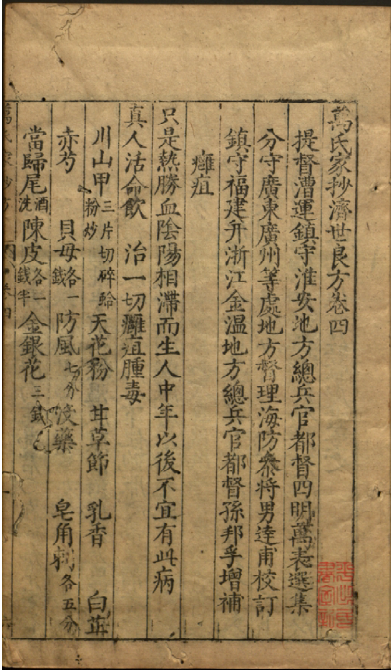 萬氏家抄濟世良方卷四
提督漕運鎮守淮安地方總兵官都督四明萬表選集
分守廣東廣州等處地方督理海防叅將男達甫校訂
鎮守福建并浙江金溫地方總兵官都督孫邦孚增補
癰疽
只是熱勝血陰陽相滯而生人中年以後不宜有此病
真人活命飲 治一切癰疽腫毒
川山甲三片切碎蛤粉炒 天花粉 甘草節 乳香 白芷
赤芍 貝母各一錢 防風七分 沒藥 皂角刺各五分
當歸尾酒洗 陳皮各一錢半 金銀花三錢